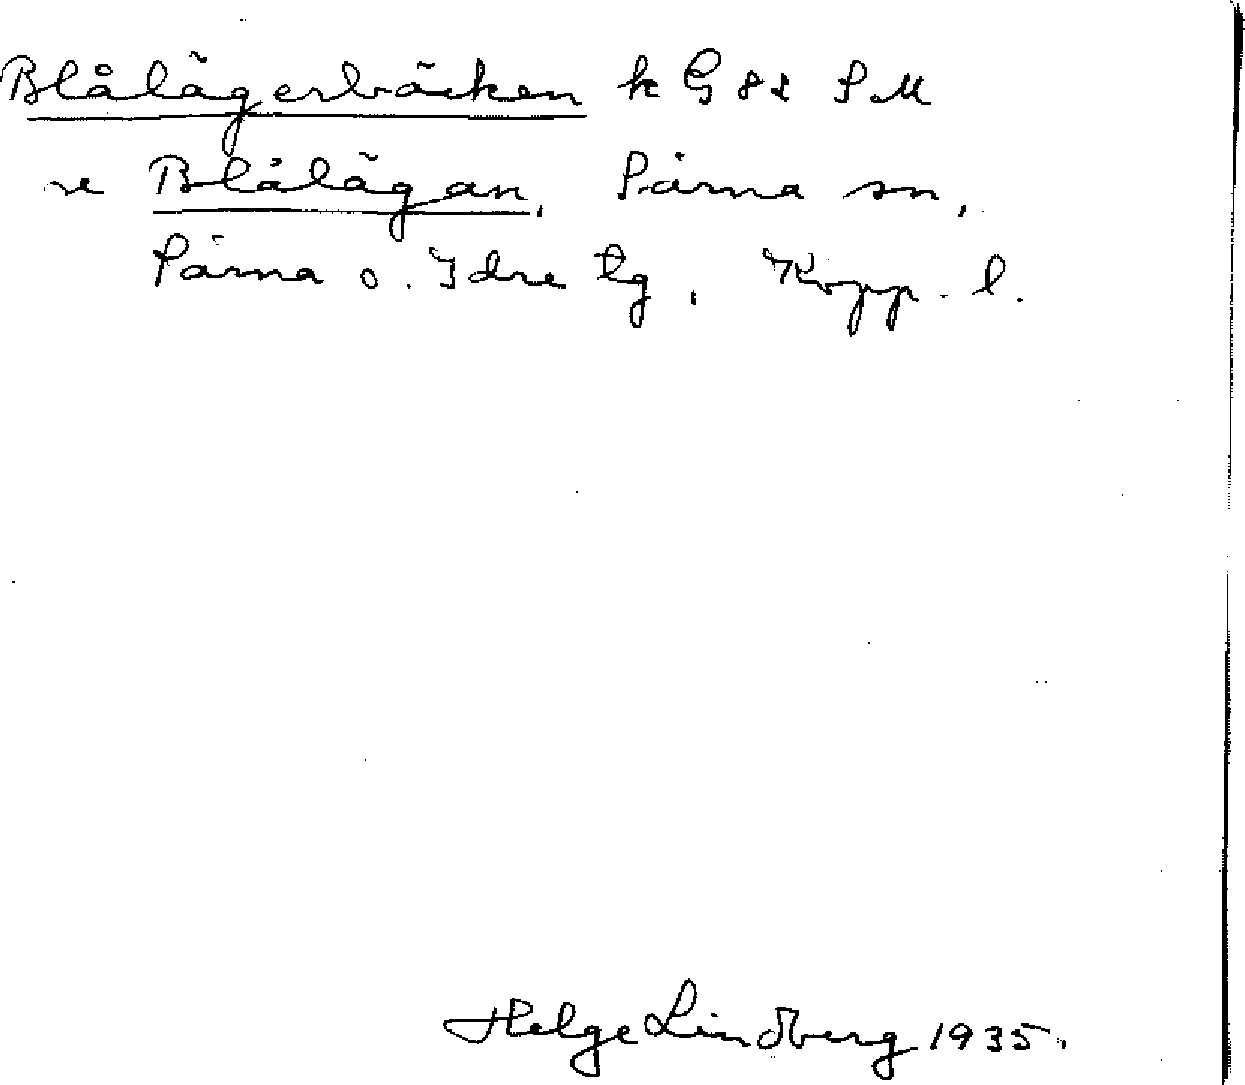 Blålägerbäcken k G 82 SM
se Blålägan, Särna sn,
Särna o. Idre tg, Kopp. l.
Helge Lindberg 1935.